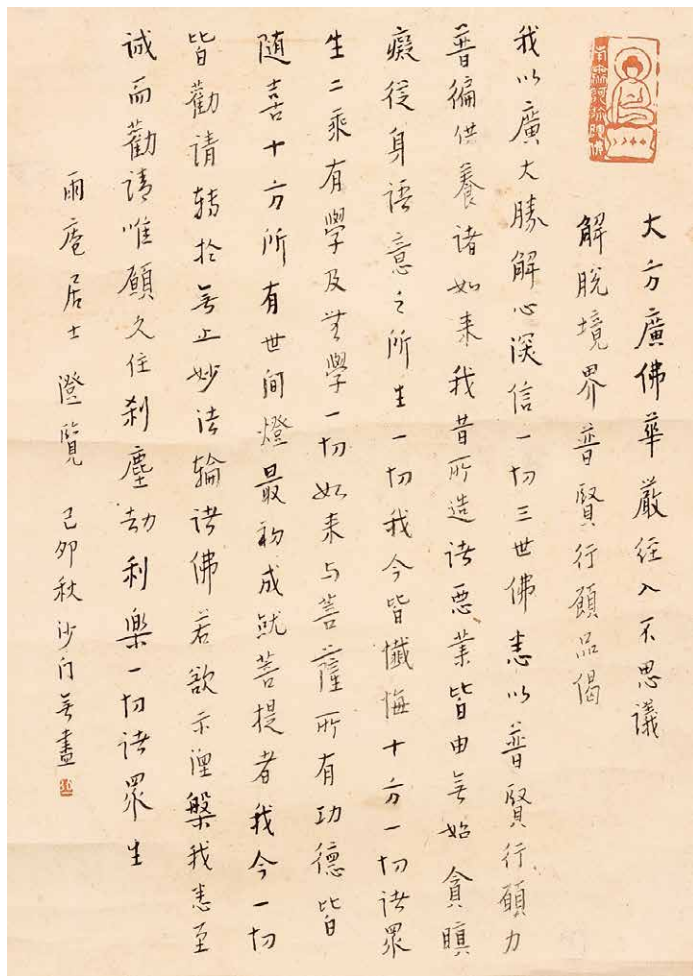 南無阿彌陀佛
大方廣佛華嚴經入不思議
解脫境界普賢行願品偈
我以廣大勝解心深信一切三世佛悉以普賢行願力
普徧供養諸如来我昔所造諸惡業皆由無始貪瞋
癡從身語意之所生一切我今皆懺悔十方一切諸眾
生二乘有學及無學一切如来与菩薩所有功德皆
随喜十方所有世间燈最初成就菩提者我今一切
皆勸請轉於無上妙法輪諸佛若欲示涅槃我悉至
誠而勸請唯願久住剎塵劫利樂一切諸眾生
雨庵居士 澄覽 己卯秋沙门無盡